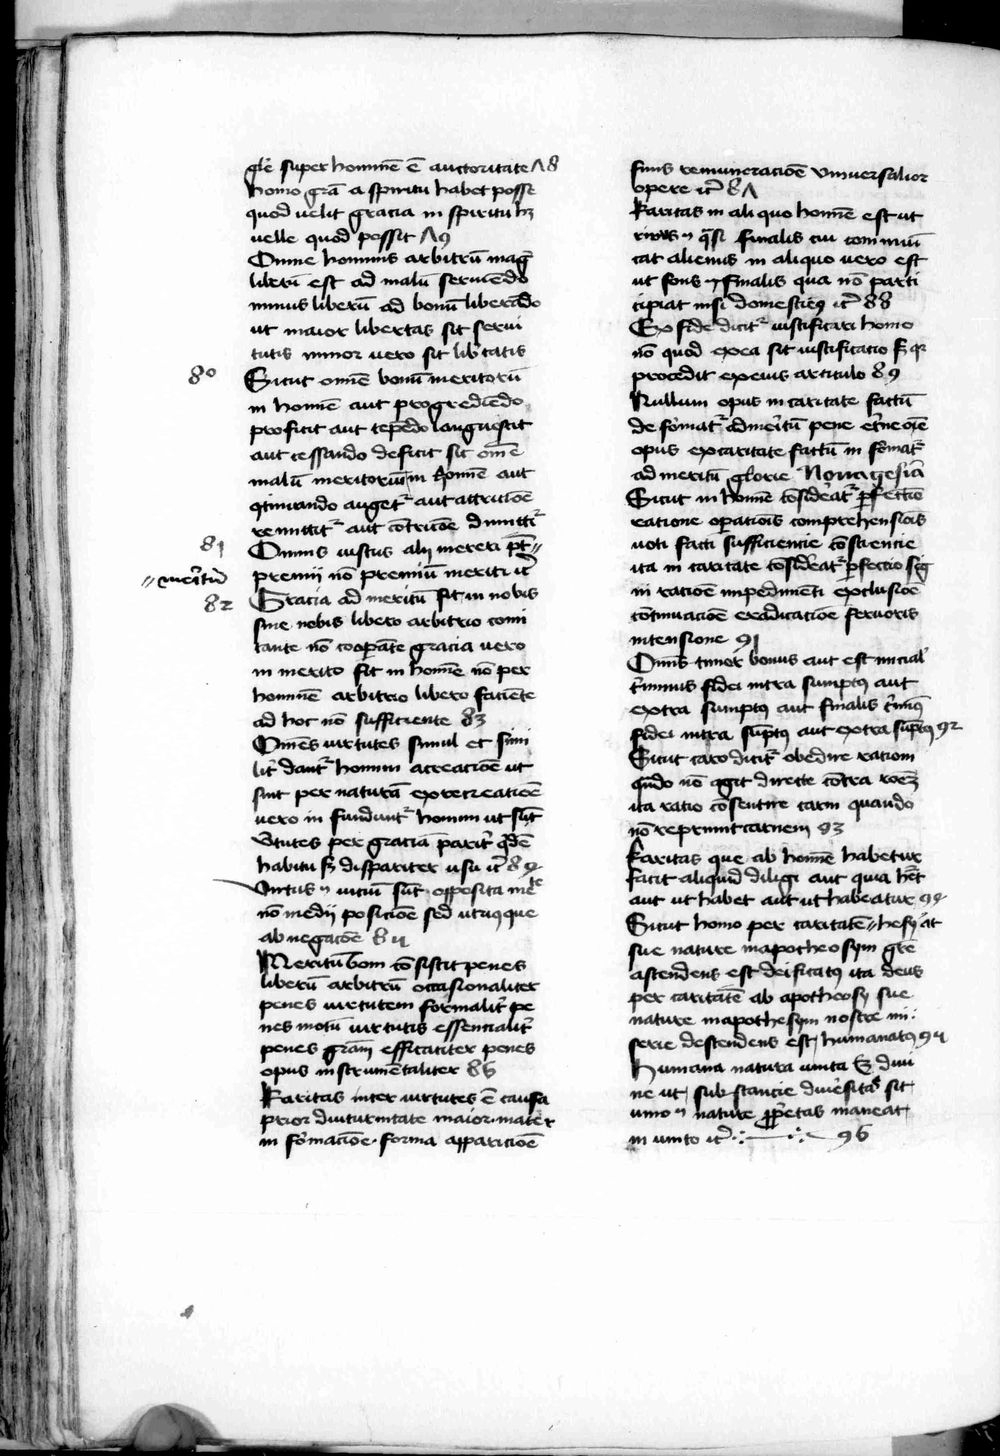 gle super hominē ē auctoritate 78
homo grā a spiritu habet posse
quod velit gracia in spiritu hʒ
velle quod possit 79
Omne hominis arbitriū mag
liberū est ad malū serviēdo
minus liberū ad bonū liberādo
ut maior libertas sit servi
tutis minor vero sit libtatis
80 Sicut omē bonū meritoriū
in homīe aut progrediēdo
proficit aut tepēdo languescit
aut cessando deficit sic omē
malū meritoriū in homīe aut
9tinuando auget͛ aut attriciōe
remittit͛ aut cōtriciōe dimittit͛
81 Omnis iustus alii mereri pt̄ //
// meritū
premii nō premiū meriti ic͛
82 Gracia ad meritū fit in nobis
sine nobis libero arbitrio comi
tante nō coopāte gracia vero
in merito fit in homīe nō per
hominē arbitrio libero faciēte
ad hoc nō sufficiente 83
Om̄es virtutes simul et simi
lit͛ dant͛ homini a creaciōe ut
sint per naturā ex recreaciōe
vero in fundunt͛ homini ut sūt
v͛tutes per graciā parit͛ q̇dē
habitu sʒ dispariter usu ic͛ 84
Virtus 7 viciū sūt opposita me
nō medii posiciōe sed utriusque
ab negaciōe 85
Meritū bom cō sistit penes
liberū arbitriū occasionaliter
penes virtutem formalit͛ pe
nes motū virtutis essencialit͛
penes grām efficaciter penes
opus in strumētaliter 86
Karitas inter virtutes ē causa
prior diuturnitate maior mater
in fo͛maciōe forma appariciōe
finis remuneraciōe universalior
opere ic͛ 87
Karitas in ali quo homīe est ut
rivus 7 q̄si finalis cui com mūi
cat alienus in aliquo vero est
ut fons 7 finalis qua nō parti
cipiat nisi domesticꝰ ic͛ 88
Ex fide dicit͛ iustificari homo
nō quod ex ea sit iustificatio sʒ qꝛ
procedit ex eius articulo 89
Nullum opus in caritate factū
de fo͛mat͛ ad meritū pene et͛ne omē
opus ex caritate factū in fo͛mat͛
ad meritū glorie Nonagesia
Sicut in homīe cōsiderat͛ pfectio
ratione opaciōis comprehensiōis
voti facti sufficiencie cōsciencie
ita in caritate cōsiderat͛ pfectio sig
in raciōe impedimēti exclusiōe
cōtinuaciōe eradicaciōe fervoris
intensione 91
Omīs timor bonus aut est inicial͛
t͛minus fidei intra sumptꝰ aut
extra sumptꝰ aut finalis t͛minꝰ
fidei intra sūptꝰ aut extra sūptꝰ 92
Sicut caro dicit͛ obedire racioni
qn̄do nō agit directe cōtra roēʒ
ita ratio cōsentire carni quando
nō reprimit carnem 93
Karitas que ab homīe habetur
facit aliquid diligi aut quia hēt
aut ut habet aut ut habeatur 94
Sicut homo per caritatē //
sue nature in apotheosym gre
ascendens est deificatꝰ ita deus
per caritatē ab apotheosy sue
nature in apothesym nostre mi
serie descendens est humanatꝰ 95
Humana natura unita sʒ divi
ne ut sub stancie div͛sitas sit
unio 7 nature ppetas maneat
in unito ic͛ 96